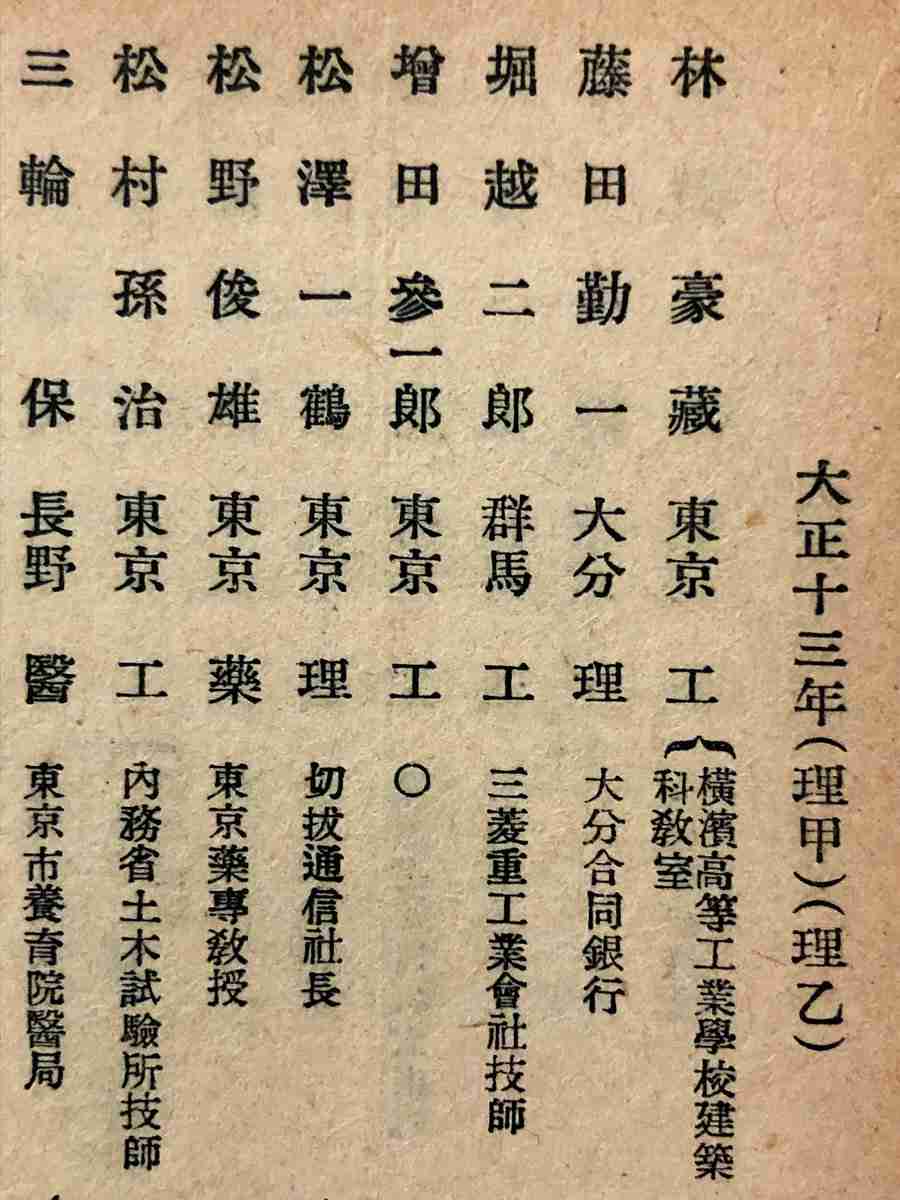 大正十三年（理甲）（理乙）
林豪藏 東京 工 橫濱高等工業學校建築
科教室
藤田勤一 大分 理 大分合同銀行
堀越二郎 群馬 工 三菱重工業會社技師
增田參一郎 東京 工 〇
松澤一鶴 東京 理 切拔通信社長
松野俊雄 東京 藥 東京藥專教授
松村孫治 東京 工 內務省土木試驗所技師
三輪保 長野 醫 東京市養育院醫局